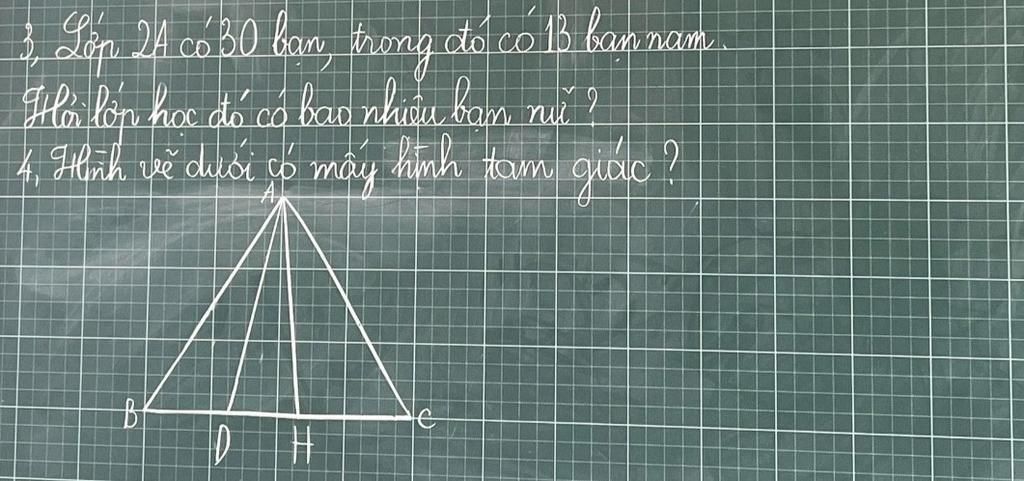 3, Lớp 2A có 30 bạn, trong đó có 13 bạn nam.
Hỏi lớp học đó có bao nhiêu bạn nữ?
4, Hình vẽ dưới có mấy hình tam giác?
A
B
C
D H